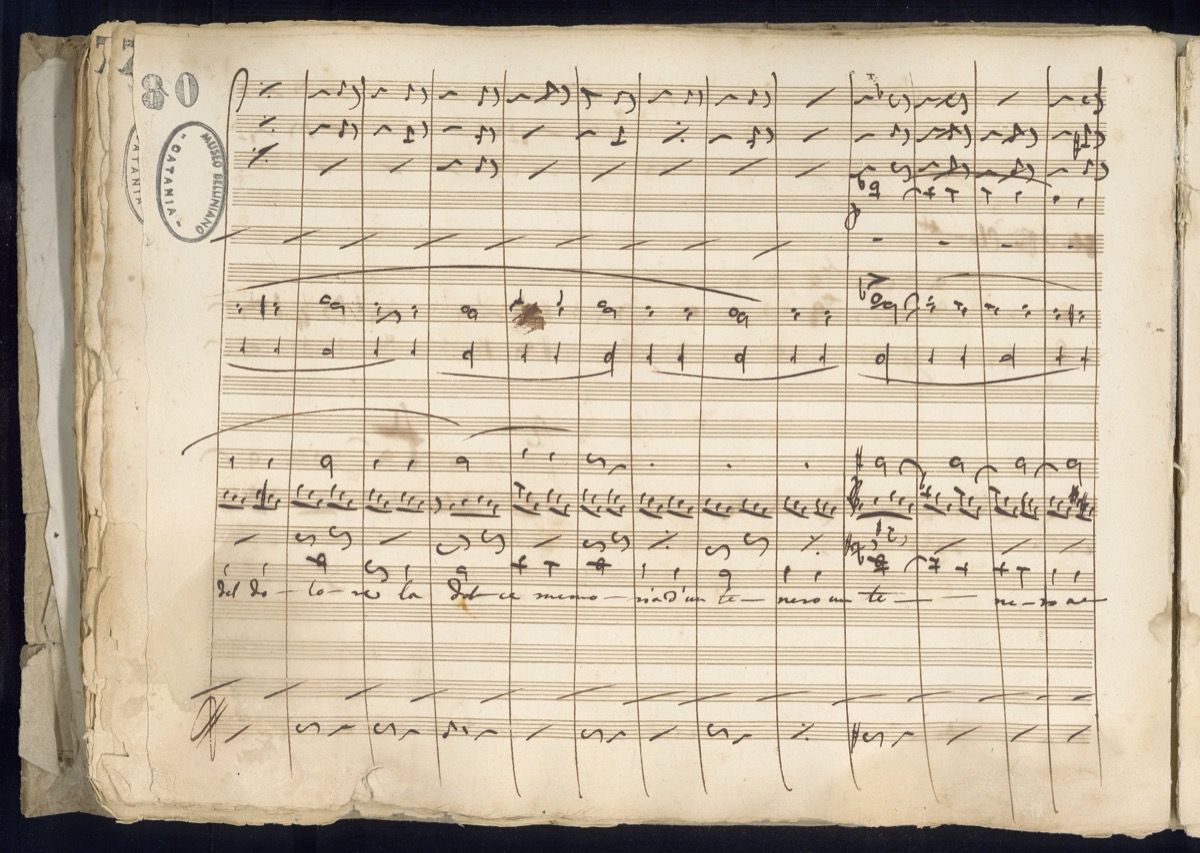 80
MUSEO BELLINIANO
- CATANIA -
CATANIA
del do - lo - re la dol ce memo - ria d'un te - nero un te - ne - ro a